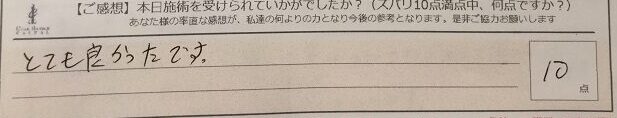 【ご感想】本日施術を受けられていかがでしたか？（ズバリ10点満点中、何点ですか？）
あなた様の率直な感想が、私達の何よりの力となり今後の参考となります。是非ご協力お願いします
とても良かったです。
10
点